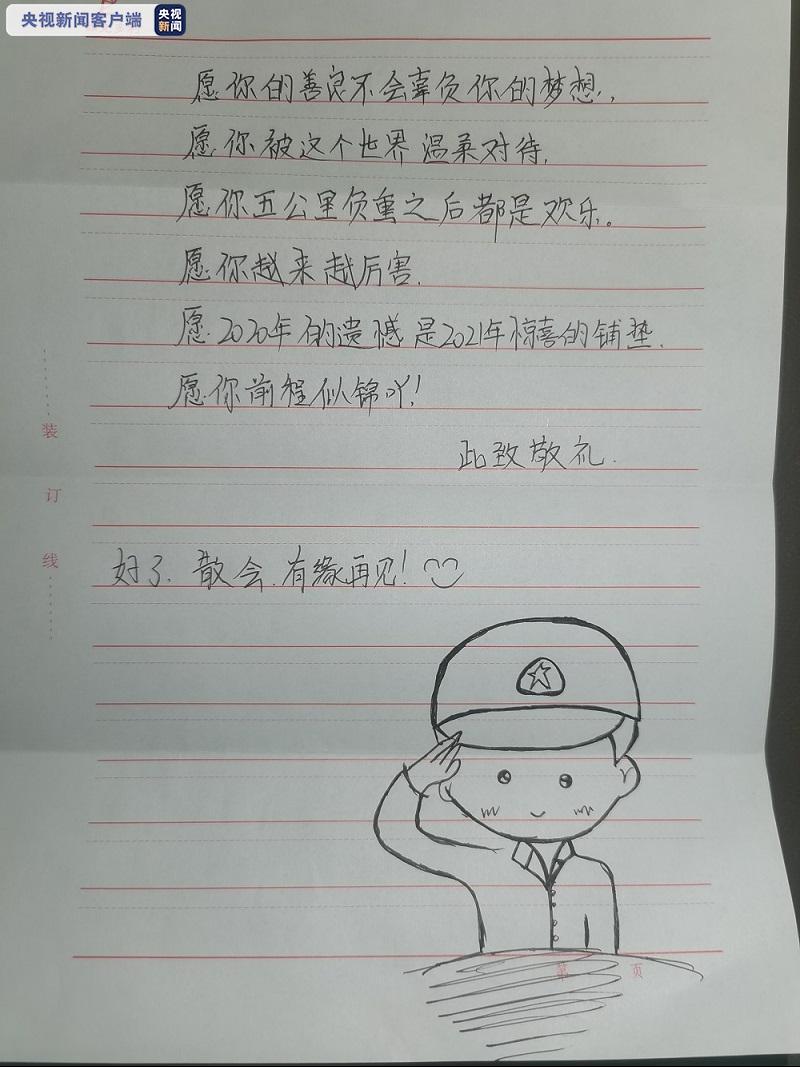 央视新闻客户端 央视新闻
愿你的善良不会辜负你的梦想，
愿你被这个世界温柔对待，
愿你五公里负重之后都是欢乐。
愿你越来越厉害，
愿2020年的遗憾是2021年惊喜的铺垫，
愿你前程似锦吖！
此致敬礼.
好了，散会，有缘再见！
装
订
线
第 页